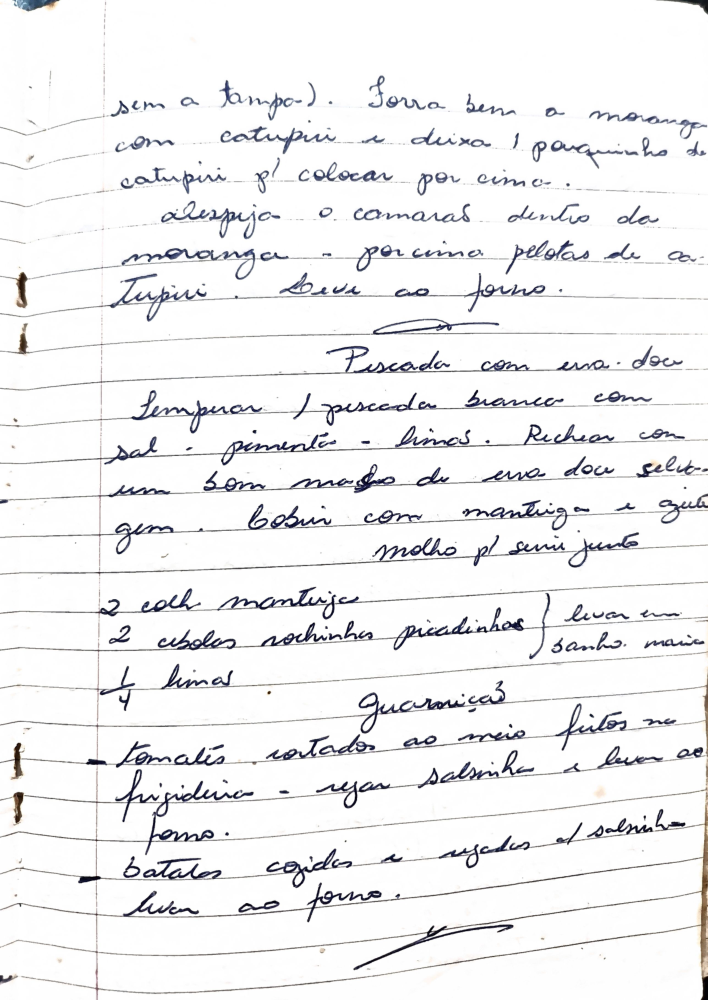 sem a tampa). Forra bem a moranga
com catupiri e deixa 1 pouquinho de
catupiri p/ colocar por cima.
despeja o camarão dentro da
moranga - por cima pelotas de ca-
tupiri. Leve ao forno.
Pescada com erva-doce
Temperar 1 pescada branca com
sal - pimenta - limão. Rechear com
um bom maço de erva doce selva-
gem. Cobrir com manteiga e azeite
molho p/ servir junto
2 colh manteiga
2 cebolas rochinhas picadinhas } levar em
banho. maria
1/4 limão
Guarnição
- tomates cortados ao meio feitos na
frigideira - regar salsinha e levar ao
forno.
- batatas cozidas e regadas c/ salsinha
levar ao forno.